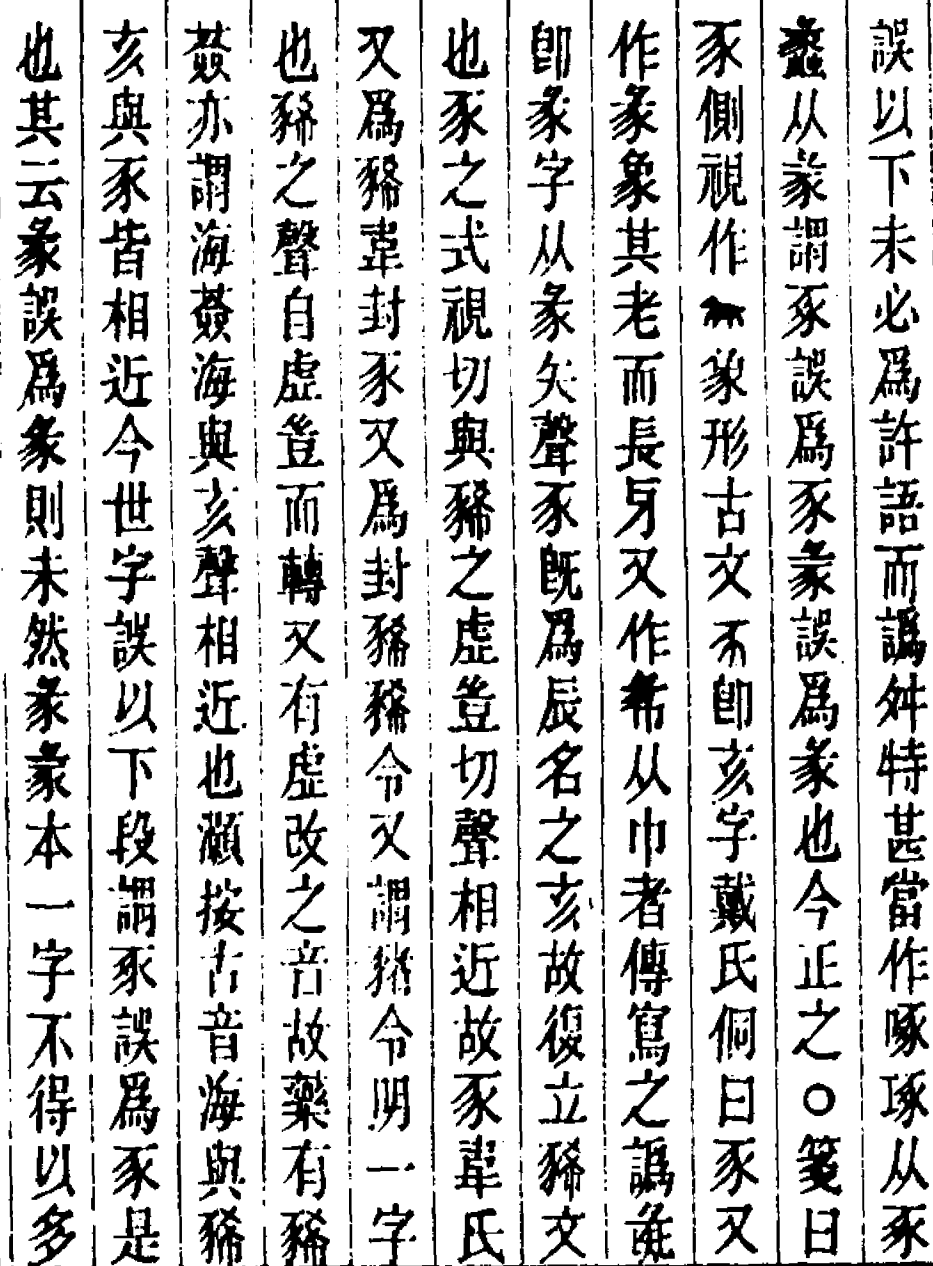 誤以下未必爲許語而譌舛特甚當作啄琢从豕
蠡从彖謂豕誤爲豕彖誤爲彖也今正之○箋曰
豕側視作象形古文𠀅卽亥字戴氏侗曰豕又
作彖象其老而長身又作㣇从巾者傳寫之譌彘
卽彖字从彖矢聲豕旣爲辰名之亥故復立豨文
也豕之式視切與豨之虛豈切聲相近故豕韋氏
又爲豨韋封豕又爲封豨豨令又謂豬令明一字
也豨之聲自虛豈而轉又有虛改之音故藥有豨
薟亦謂海薟海與亥聲相近也灝按古音海與豨
亥與豕皆相近今世字誤以下段謂豕誤爲豕是
也其云彖誤爲彖則未然彖彖本一字不得以多